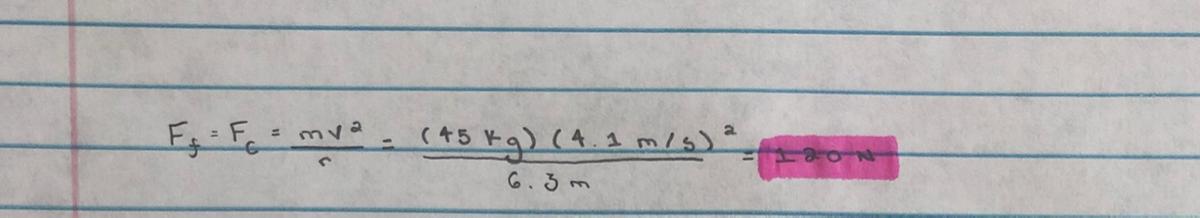 F_f = F_c = mv²/r = (45 kg)(4.1 m/s)²/6.3 m = 120 N